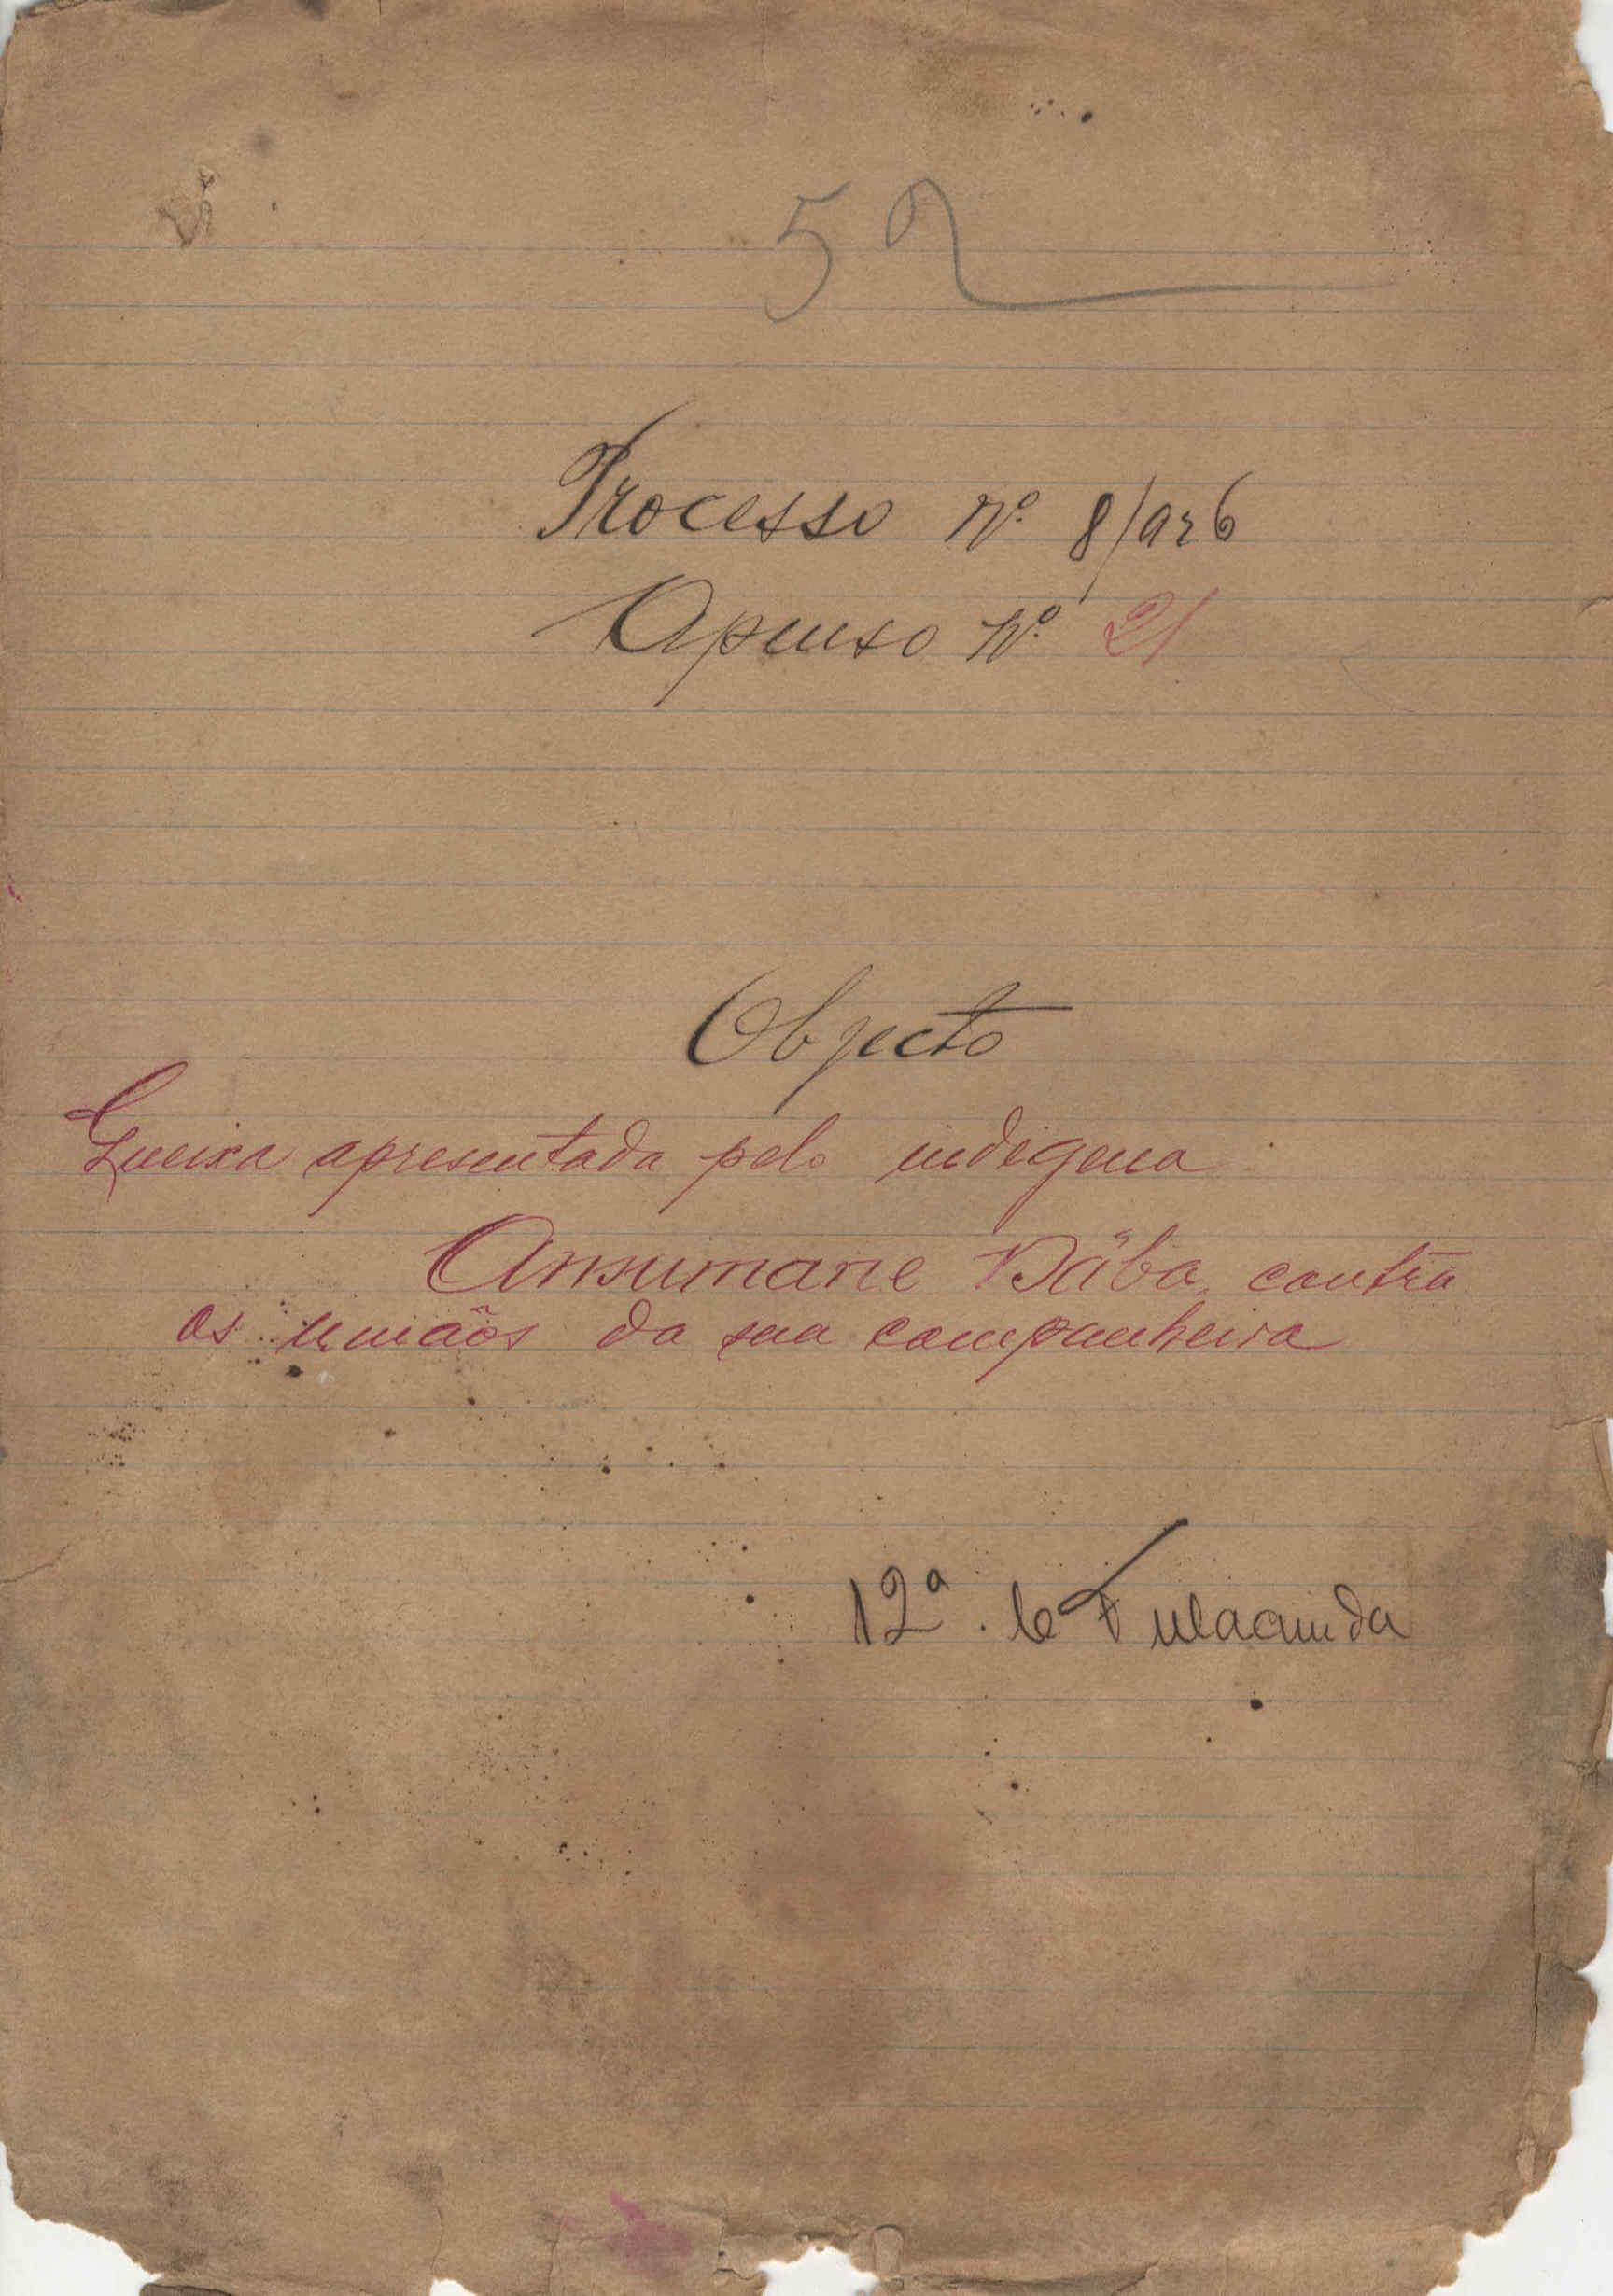 52
Processo Nº. 8/926
Apenso Nº. 21
Objecto
Queixa apresentada pelo indigena
Ansumane Bába, contra
os irmãos da sua companheira
12ª. C Fulacunda